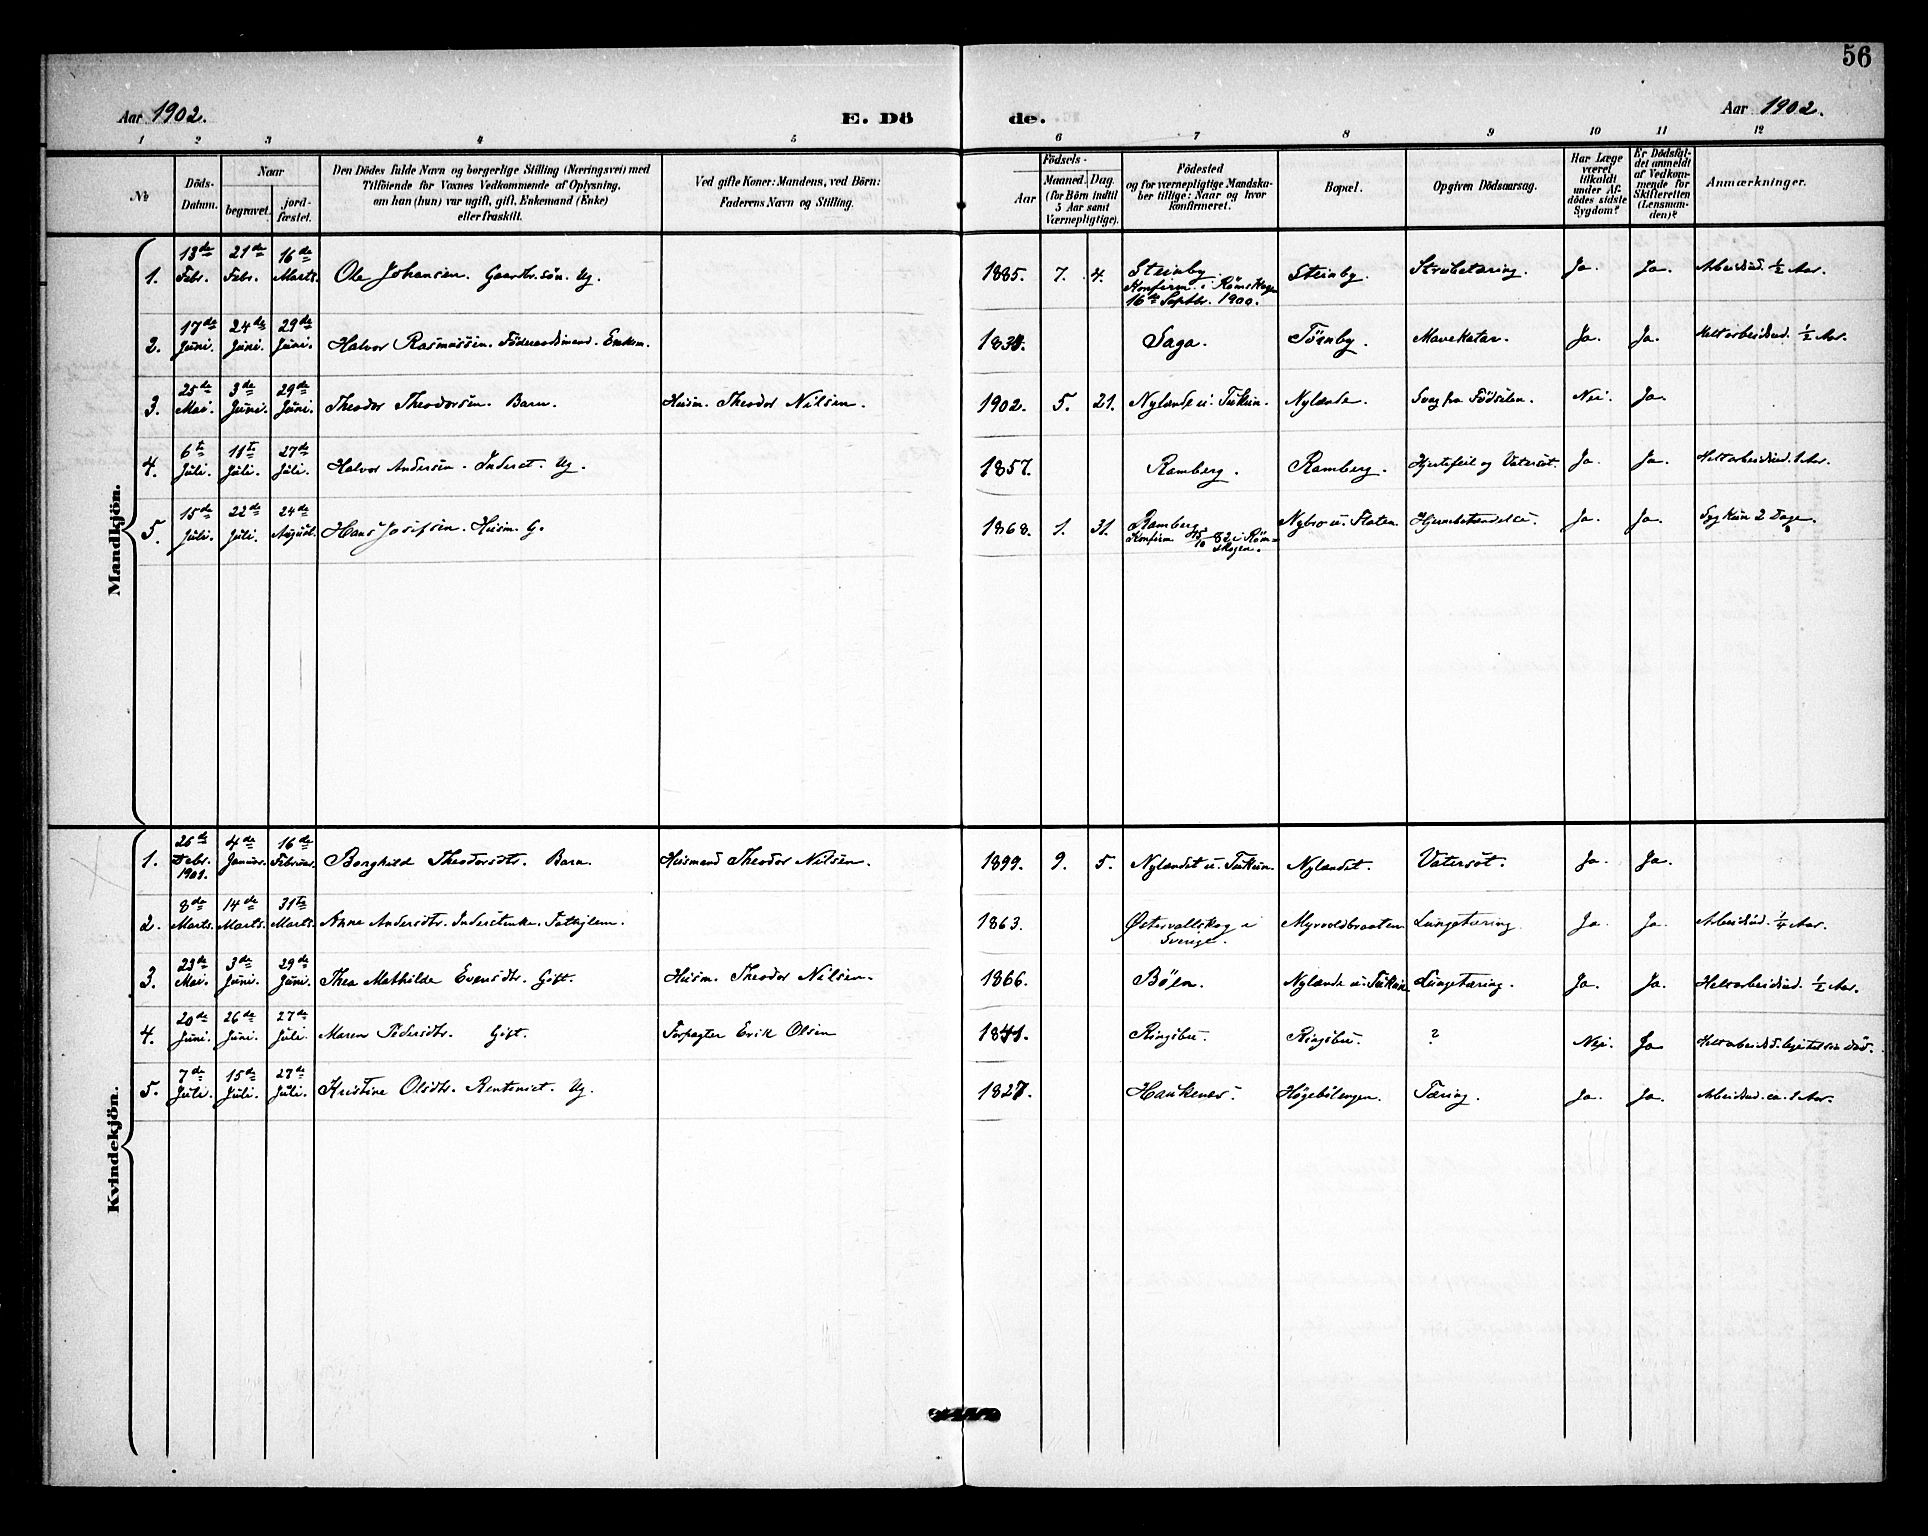 56
Aar 1902.
E. Dö de.
Aar 1902.
1 2 3 4 5 6 7 8 9 10 11 12
№
Döds-Datum.
Naar
begravet.
jord-fæstet.
Den Dödes fulde Navn og borgerlige Stilling (Næringsvei) med
Tilföiende for Voxnes Vedkommende af Oplysning,
om han (hun) var ugift, gift, Enkemand (Enke)
eller fraskilt.
Ved gifte Koner: Mandens, ved Börn:
Faderens Navn og Stilling.
Födsels-
Aar
Maaned. Dag.
(for Börn indtil
5 Aar samt
Værnepligtige).
Födested
og for værnepligtige Mandska-
ber tillige: Naar og hvor
konfirmeret.
Bopæl.
Opgiven Dödsaarsag.
Har Læge
været
tilkaldt
under Af-
dödes sidste
Sygdom?
Er Dödsfal-
det anmeldt
af Vedkom-
mende for
Skifteretten
(Lensman-
den)?
Anmærkninger.
Mandkjön.
1. 13de Febr. 21de Febr. 16de Marts. Ole Johansen. Gaardbr.sön. Ug. 1885. 7. 4. Steinby. Konfirm. i Römskogen 16de Septbr. 1900. Steinby. Strubetæring. Ja. Ja. Arbeidsud. ½ Aar.
2. 17de Juni. 24de Juni. 29de Juni. Halvor Rasmussen. Föderaadsmand. Enkem. Saga. Törnby. Mavekatar. Ja. Ja. Helt arbeidsud. ½ Aar.
3. 25de Mai. 3de Juni. 29de Juni. Theodor Theodorsen. Barn. Husm. Theodor Nilsen. 1902. 5. 21. Nylande u. Tukun. Nylande. Svag fra Födselen. Nei. Ja.
4. 6te Juli. 11te Juli. 27de Juli. Halvor Andersen. Inderst. Ug. 1857. Ramberg. Ramberg. Hjertefeil og Vatersot. Ja. Ja. Helt arbeidsud. 1 Aar.
5. 15de Juli. 22de Juli. 24de August. Hans Josefsen. Husm. G. 1868. 1. 31. Ramberg. Konfirm 15/10 82 i Römskogen. Nybro u. Flaten. Hjernebetændelse. Ja. Ja. Syg kun 2 Dage.
Kvindekjön.
1. 26de Debr. 1901. 4de Januar. 16de Februar. Borghild Theodorsdtr. Barn. Husmand Theodor Nilsen. 1899. 9. 5. Nylandet u. Tukun. Nylandet. Vatersot. Ja. Ja.
2. 8de Marts. 14de Marts. 31te Marts. Anne Andersdtr. Inderstenke. Fattiglem. 1863. Østervallskog i Sverige. Myrvoldbraaten Lungetæring. Ja. Ja. Arbeidsud. ¼ Aar.
3. 23de Mai. 3de Juni. 29de Juni. Thea Mathilde Evensdtr. Gift. Husm. Theodor Nilsen. 1866. Böen. Nylande u. Tukun Lungetæring. Ja. Ja. Helt arbeidsud. ½ Aar.
4. 20de Juni. 26de Juni. 27de Juli. Maren Pedersdtr. Gift. Forpagter Erik Olsen 1841. Ringsbu. Ringsbu. ? Nei. Ja
5. 7de Juli. 15de Juli. 27de Juli. Kristine Olsdtr. Rentenist. Ug. 1827. Haukenes. Högebölengen. Tæring. Ja. Ja. Arbeidsud. ca. 1 Aar.